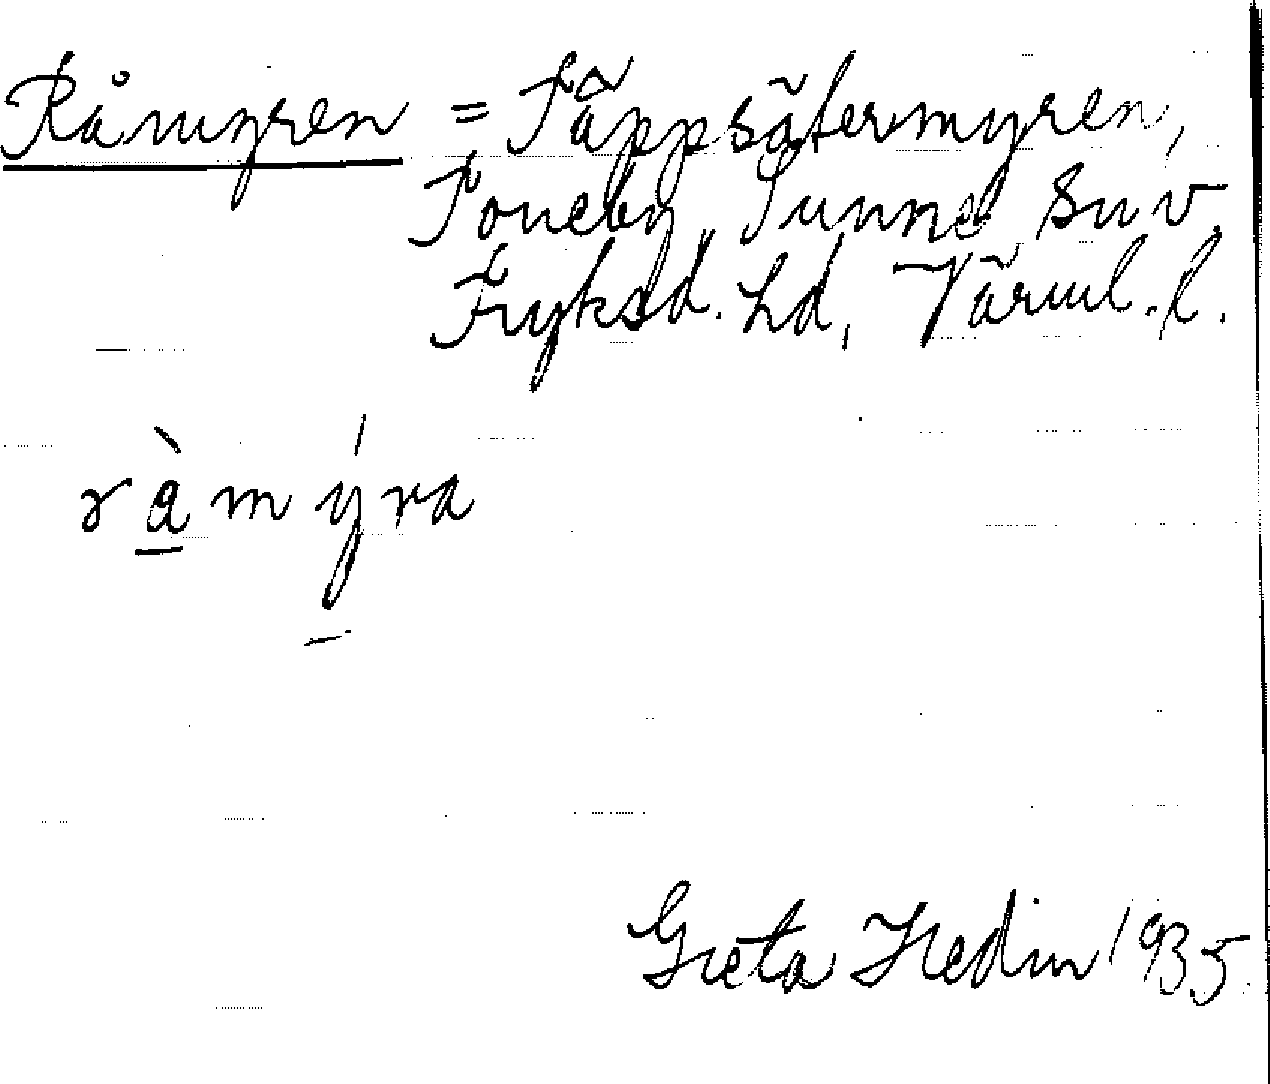 Råmyren = Täppsätermyren,
Toneby, Sunne Sn v.
Fryksd. hd, Värml. l.
råmýra
Greta Hedin 1935